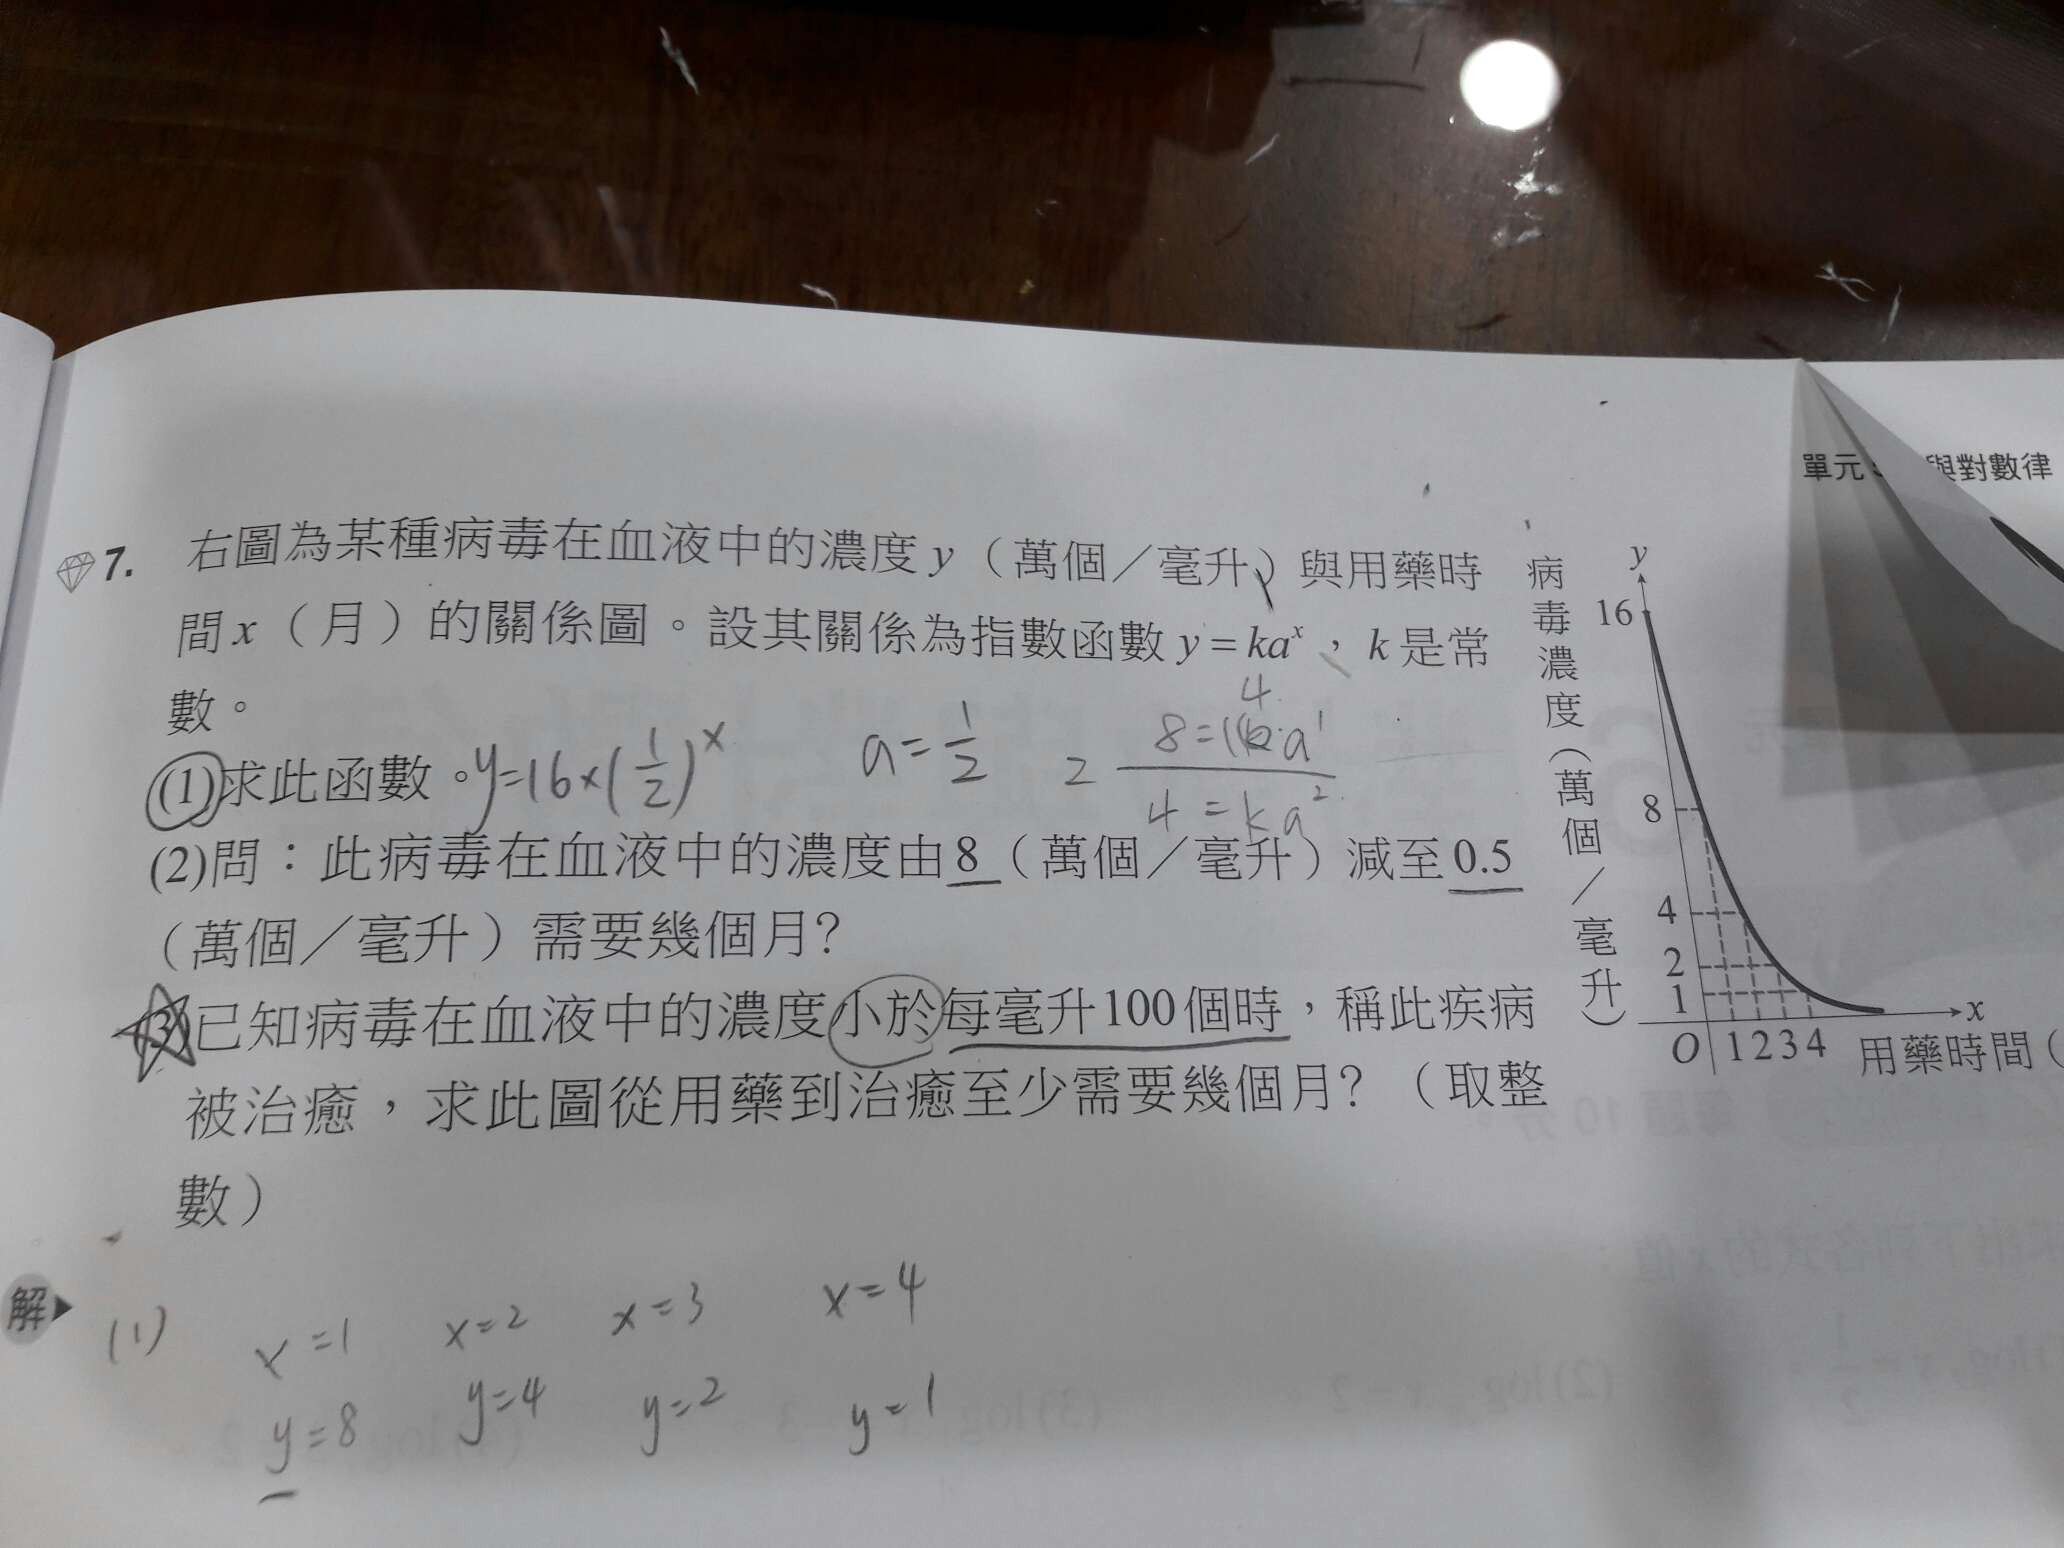 單元 與對數律
7. 右圖為某種病毒在血液中的濃度 y（萬個／毫升）與用藥時
間 x（月）的關係圖。設其關係為指數函數 y = kaˣ，k 是常
數。
(1)求此函數。y=16×(1/2)ˣ a=1/2
4
2 8=16·a¹
4=ka²
(2)問：此病毒在血液中的濃度由8（萬個／毫升）減至0.5
（萬個／毫升）需要幾個月？
(3)已知病毒在血液中的濃度小於每毫升100個時，稱此疾病
被治癒，求此圖從用藥到治癒至少需要幾個月？（取整
數）
病毒濃度（萬個／毫升）
y
16
8
4
2
1
O 1 2 3 4 x
用藥時間（
解
(1) x=1 x=2 x=3 x=4
y=8 y=4 y=2 y=1